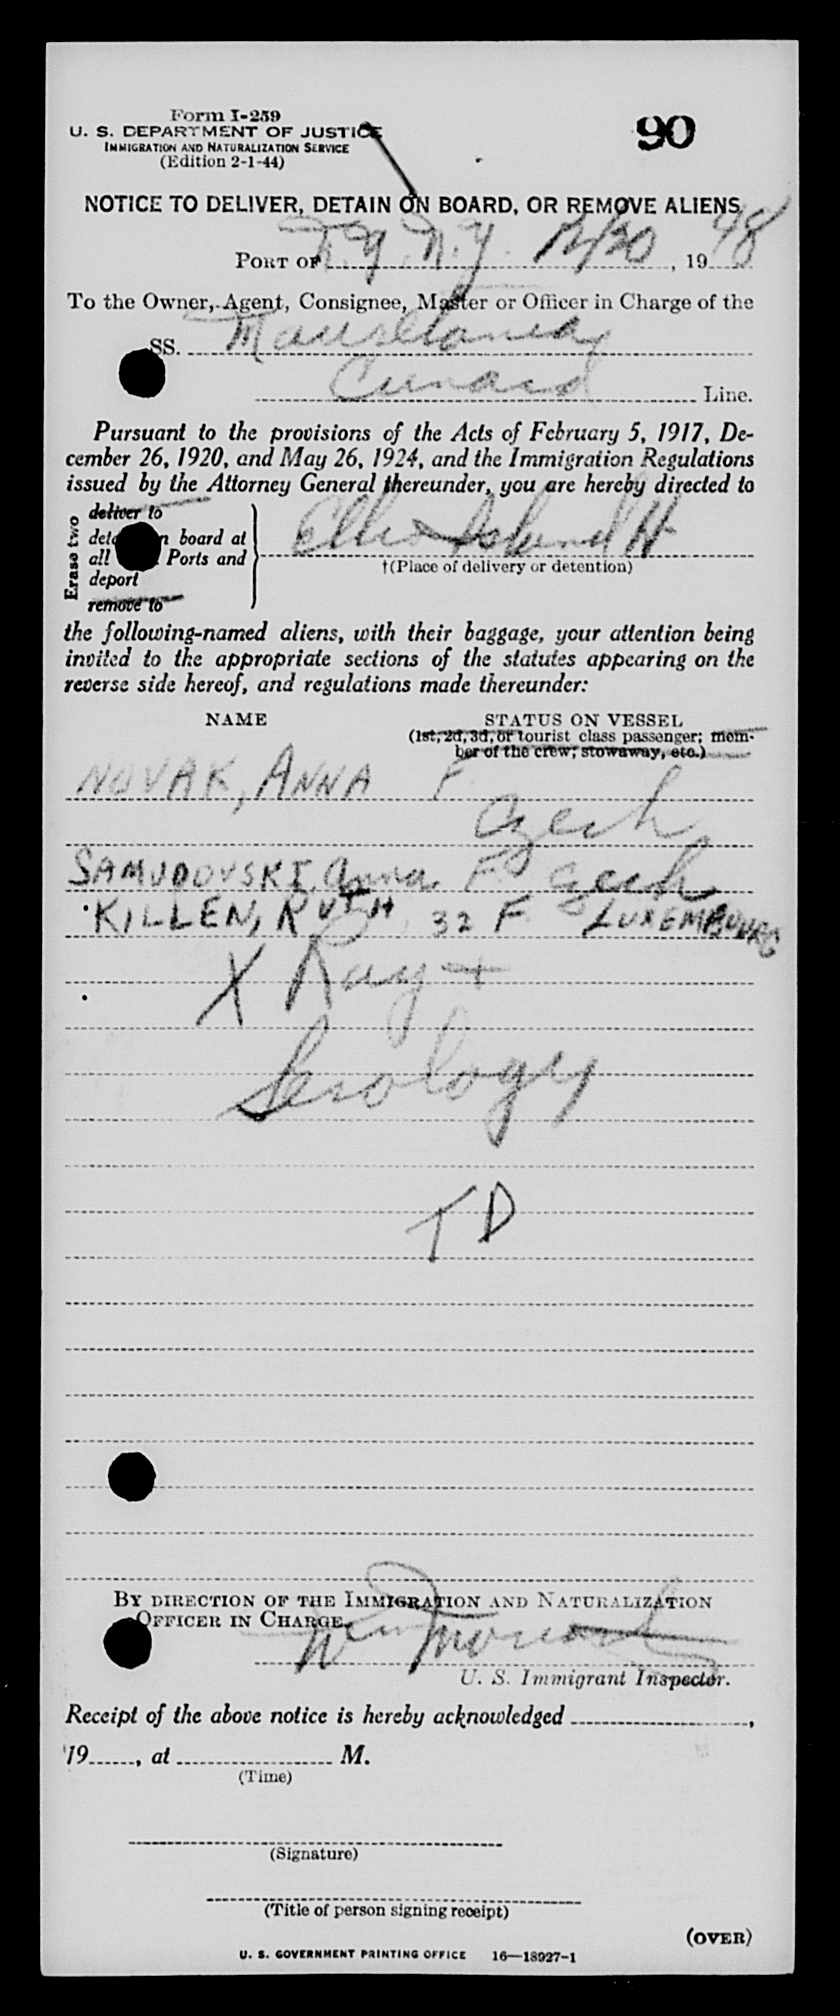 Form I-259
U. S. DEPARTMENT OF JUSTICE
IMMIGRATION AND NATURALIZATION SERVICE
(Edition 2-1-44)
90
NOTICE TO DELIVER, DETAIN ON BOARD, OR REMOVE ALIENS
PORT OF N.Y. N.Y. 12/30, 1948
To the Owner, Agent, Consignee, Master or Officer in Charge of the
SS. Mauretania
Cunard Line.
Pursuant to the provisions of the Acts of February 5, 1917, De-
cember 26, 1920, and May 26, 1924, and the Immigration Regulations
issued by the Attorney General thereunder, you are hereby directed to
Erase two
deliver to
board at
all Ports and
deport
remove to
Ellis Island H
†(Place of delivery or detention)
the following-named aliens, with their baggage, your attention being
invited to the appropriate sections of the statutes appearing on the
reverse side hereof, and regulations made thereunder:
NAME STATUS ON VESSEL
(1st, 2d, 3d, or tourist class passenger; mem-
ber of the crew; stowaway, etc.)
NOVAK, ANNA F
Czech
SAMUDOVSKI, Anna F Czech
KILLEN, RUTH 32 F LUXEMBOURG
X Ray +
Serology
TD
BY DIRECTION OF THE IMMIGRATION AND NATURALIZATION
OFFICER IN CHARGE.
U. S. Immigrant Inspector.
Receipt of the above notice is hereby acknowledged ,
19 , at M.
(Time)
(Signature)
(Title of person signing receipt)
(OVER)
U. S. GOVERNMENT PRINTING OFFICE 16—18927-1